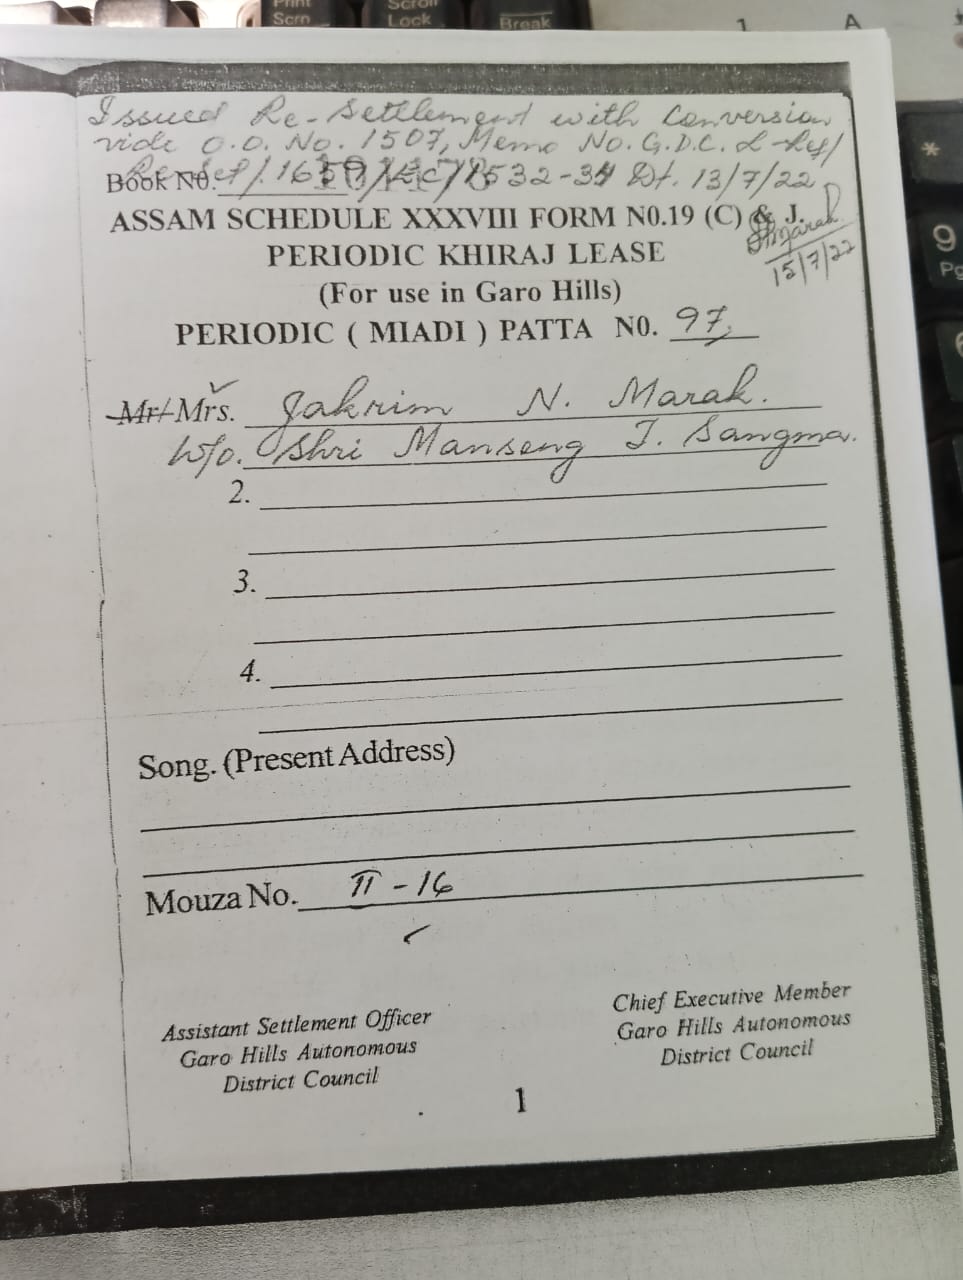 Print
Scrn
Scroll
Lock
Break
1
A
*
9
Pg
6
Issued Re-Settlement with Conversion
vide O.O. No. 1507, Memo No. G.D.C.
Book N0. 532-34 Dt. 13/7/22
ASSAM SCHEDULE XXXVIII FORM N0.19 (C) & J.
PERIODIC KHIRAJ LEASE
15/7/22
(For use in Garo Hills)
PERIODIC ( MIADI ) PATTA N0. 97
Mr/ Mrs. Jakrim N. Marak.
W/o. Shri Manseng T. Sangma.
2.
3.
4.
Song. (Present Address)
Mouza No. II - 16
Assistant Settlement Officer
Garo Hills Autonomous
District Council
Chief Executive Member
Garo Hills Autonomous
District Council
1